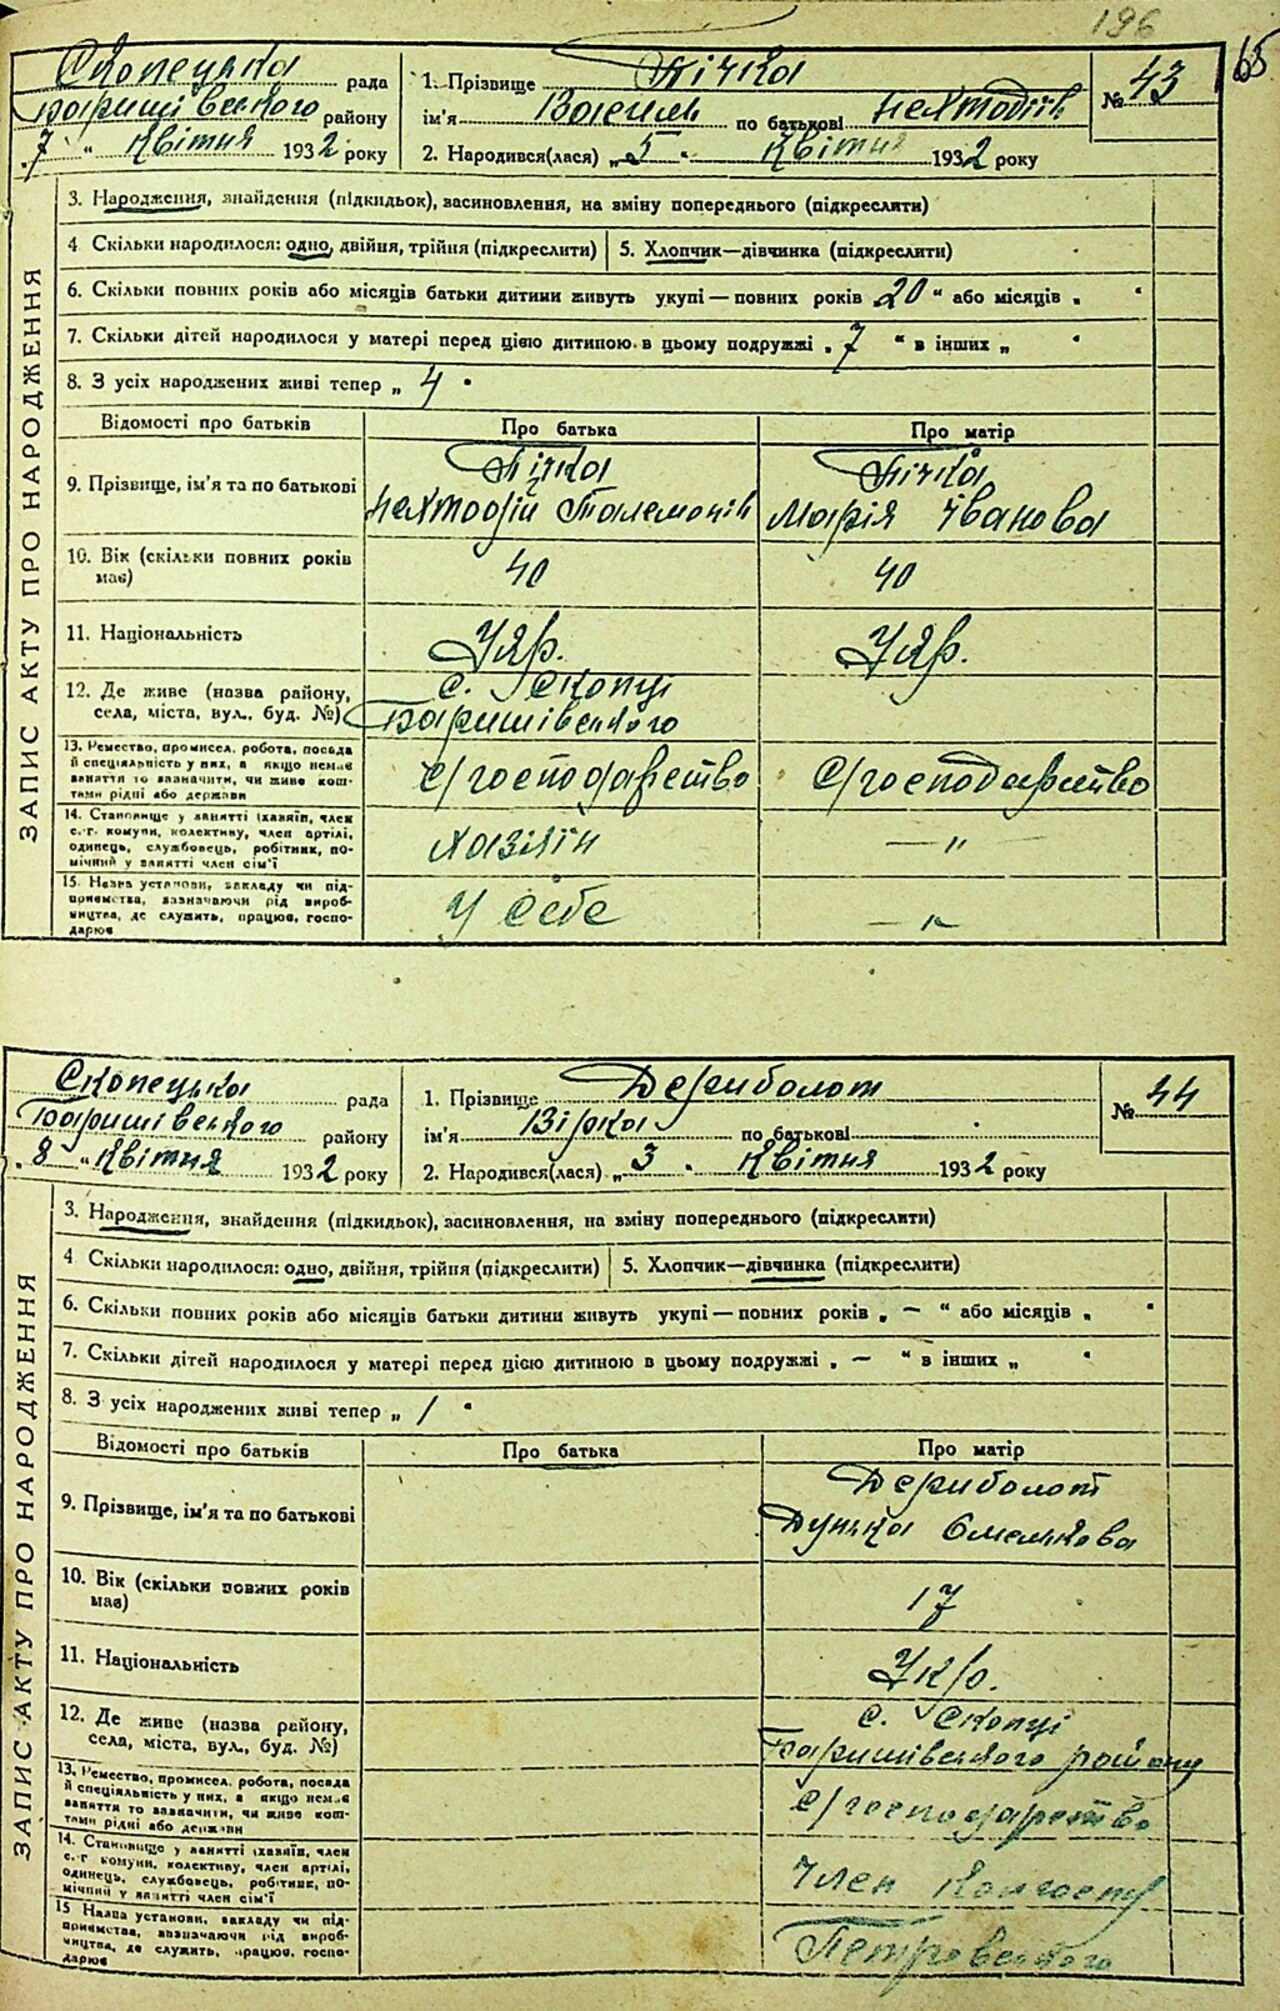 196
65
Скопецька рада
Баришівського району
„7“ Квітня 1932 року
1. Прізвище Пічка
ім'я Василь по батькові Нехтодіїв
2. Народився(лася) „5“ Квітня 1932 року
№ 43
ЗАПИС АКТУ ПРО НАРОДЖЕННЯ
3. Народження, знайдення (підкидьок), засиновлення, на зміну попереднього (підкреслити)
4 Скільки народилося: одно, двійня, трійня (підкреслити) 5. Хлопчик—дівчинка (підкреслити)
6. Скільки повних років або місяців батьки дитини живуть укупі — повних років „20“ або місяців „ “
7. Скільки дітей народилося у матері перед цією дитиною в цьому подружжі „7“ в інших „ “
8. З усіх народжених живі тепер „4“
Відомості про батьків Про батька Про матір
9. Прізвище, ім'я та по батькові
Пічка
Нехтодій Палемонів
Пічка
Марія Іванова
10. Вік (скільки повних років має)
40 40
11. Національність Укр. Укр.
12. Де живе (назва району,
села, міста, вул., буд. №)
с. Скопці
Баришівського
13. Ремество, промисел, робота, посада
й спеціяльність у них, а якщо немає
заняття то зазначити, чи живе кош-
тами рідні або держави
с/господарство с/господарство
14. Становище у занятті (хазяїн, член
с.-г. комуни, колективу, член артілі,
одинець, службовець, робітник, по-
мічний у занятті член сім'ї
хазяїн —"—
15. Назва установи, закладу чи під-
приємства, зазначаючи рід вироб-
ництва, де служить, працює, госпо-
дарює
У себе —"—
Скопецька рада
Баришівського району
„8“ Квітня 1932 року
1. Прізвище Дериболот
ім'я Вірка по батькові
2. Народився(лася) „3“ Квітня 1932 року
№ 44
ЗАПИС АКТУ ПРО НАРОДЖЕННЯ
3. Народження, знайдення (підкидьок), засиновлення, на зміну попереднього (підкреслити)
4 Скільки народилося: одно, двійня, трійня (підкреслити) 5. Хлопчик—дівчинка (підкреслити)
6. Скільки повних років або місяців батьки дитини живуть укупі — повних років „ — “ або місяців „ “
7. Скільки дітей народилося у матері перед цією дитиною в цьому подружжі „ — “ в інших „ “
8. З усіх народжених живі тепер „1“
Відомості про батьків Про батька Про матір
9. Прізвище, ім'я та по батькові
Дериболот
Дунька Омелькова
10. Вік (скільки повних років має)
17
11. Національність Укр.
12. Де живе (назва району,
села, міста, вул., буд. №)
с. Скопці
Баришівського району
13. Ремество, промисел, робота, посада
й спеціяльність у них, а якщо немає
заняття то зазначити, чи живе кош-
тами рідні або держави
с/господарство
14. Становище у занятті (хазяїн, член
с.-г комуни, колективу, член артілі,
одинець, службовець, робітник, по-
мічний у занятті член сім'ї
Член колгоспу
15 Назва установи, закладу чи під-
приємства, зазначаючи рід вироб-
ництва, де служить, працює, госпо-
дарює
Петровського